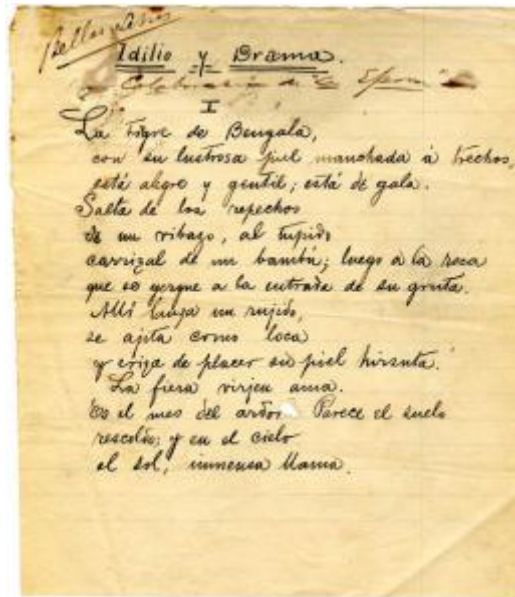 Bellas Artes
Idilio y Drama.
Colaboración de "La Época"
I
La tigre de Bengala,
con su lustrosa piel manchada á trechos,
está alegre y gentil; está de gala.
Salta de los repechos
de un ribazo, al tupido
carrizal de un bambú; luego á la roca
que se yergue á la entrada de su gruta.
Allí lanza un rujido,
se ajita como loca
y eriza de placer su piel hirsuta.
La fiera virjen ama.
Es el mes del ardor. Parece el suelo
rescoldo; y en el cielo
el sol, inmensa llama.